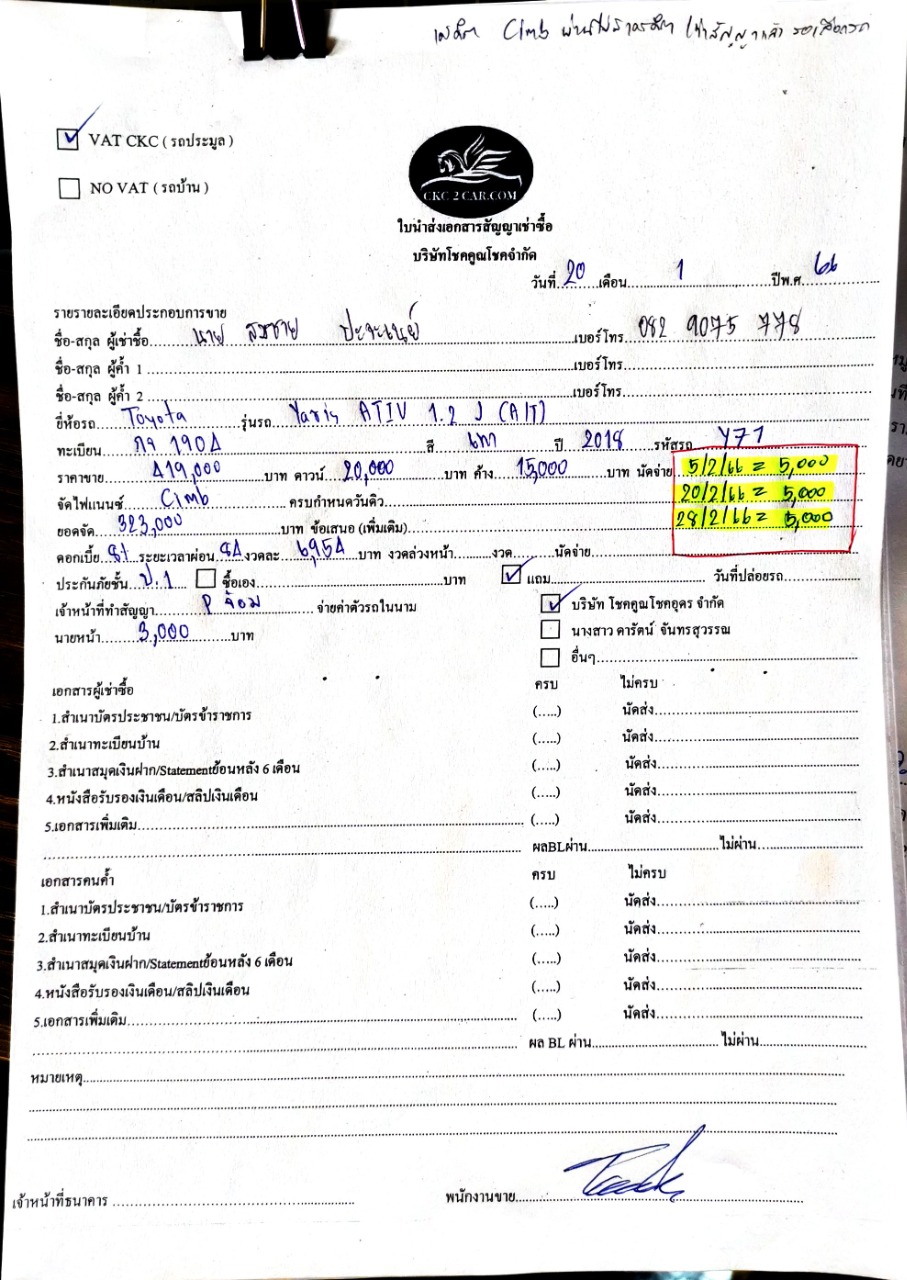 Cimb
VAT CKC ( รถประมูล )
NO VAT ( รถบ้าน )
CKC 2 CAR.COM
ใบนำส่งเอกสารสัญญาเช่าซื้อ
บริษัทโชคคูณโชคจำกัด
วันที่ 20 เดือน 1 ปีพ.ศ. 66
รายรายละเอียดประกอบการขาย
ชื่อ-สกุล ผู้เช่าซื้อ นาย สมชาย เบอร์โทร 082 9075 778
ชื่อ-สกุล ผู้ค้ำ 1 เบอร์โทร
ชื่อ-สกุล ผู้ค้ำ 2 เบอร์โทร
ยี่ห้อรถ Toyota รุ่นรถ Yaris ATIV 1.2 J (A/T)
ทะเบียน 1904 สี เทา ปี 2018 รหัสรถ Y77
ราคาขาย 419,000 บาท ดาวน์ 20,000 บาท ค้าง 15,000 บาท นัดจ่าย 5/2/66 = 5,000
จัดไฟแนนซ์ Cimb ครบกำหนดวันคิว 20/2/66 = 5,000
ยอดจัด 323,000 บาท ข้อเสนอ (เพิ่มเติม) 28/2/66 = 5,000
ดอกเบี้ย ระยะเวลาผ่อน 84 งวดละ 6,954 บาท งวดล่วงหน้า งวด นัดจ่าย
ประกันภัยชั้น ป.1 ซื้อเอง บาท แถม วันที่ปล่อยรถ
เจ้าหน้าที่ทำสัญญา P จ๋อม จ่ายค่าตัวรถในนาม บริษัท โชคคูณโชคอุดร จำกัด
นายหน้า 3,000 บาท นางสาว ดารัตน์ จันทรสุวรรณ
อื่นๆ
เอกสารผู้เช่าซื้อ ครบ ไม่ครบ
1.สำเนาบัตรประชาชน/บัตรข้าราชการ (.....) นัดส่ง
2.สำเนาทะเบียนบ้าน (.....) นัดส่ง
3.สำเนาสมุดเงินฝาก/Statementย้อนหลัง 6 เดือน (.....) นัดส่ง
4.หนังสือรับรองเงินเดือน/สลิปเงินเดือน (.....) นัดส่ง
5.เอกสารเพิ่มเติม (.....) นัดส่ง
ผลBLผ่าน ไม่ผ่าน
เอกสารคนค้ำ ครบ ไม่ครบ
1.สำเนาบัตรประชาชน/บัตรข้าราชการ (.....) นัดส่ง
2.สำเนาทะเบียนบ้าน (.....) นัดส่ง
3.สำเนาสมุดเงินฝาก/Statementย้อนหลัง 6 เดือน (.....) นัดส่ง
4.หนังสือรับรองเงินเดือน/สลิปเงินเดือน (.....) นัดส่ง
5.เอกสารเพิ่มเติม (.....) นัดส่ง
ผล BL ผ่าน ไม่ผ่าน
หมายเหตุ
เจ้าหน้าที่ธนาคาร พนักงานขาย